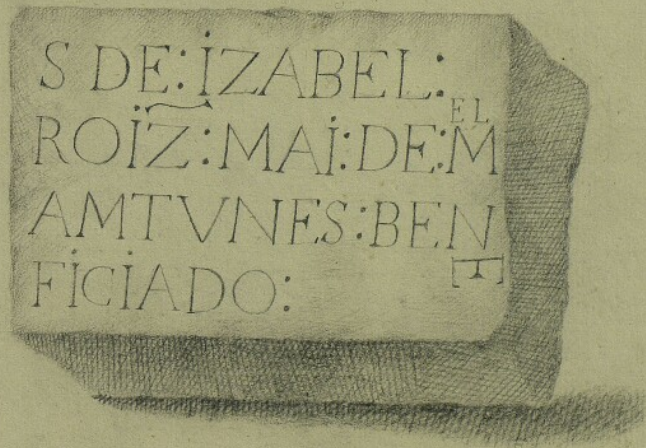 S DE: İZABEL:
ROİZ: MAİ: DE: Mᴱᴸ
AMTVNES: BEN
FİCİADO: